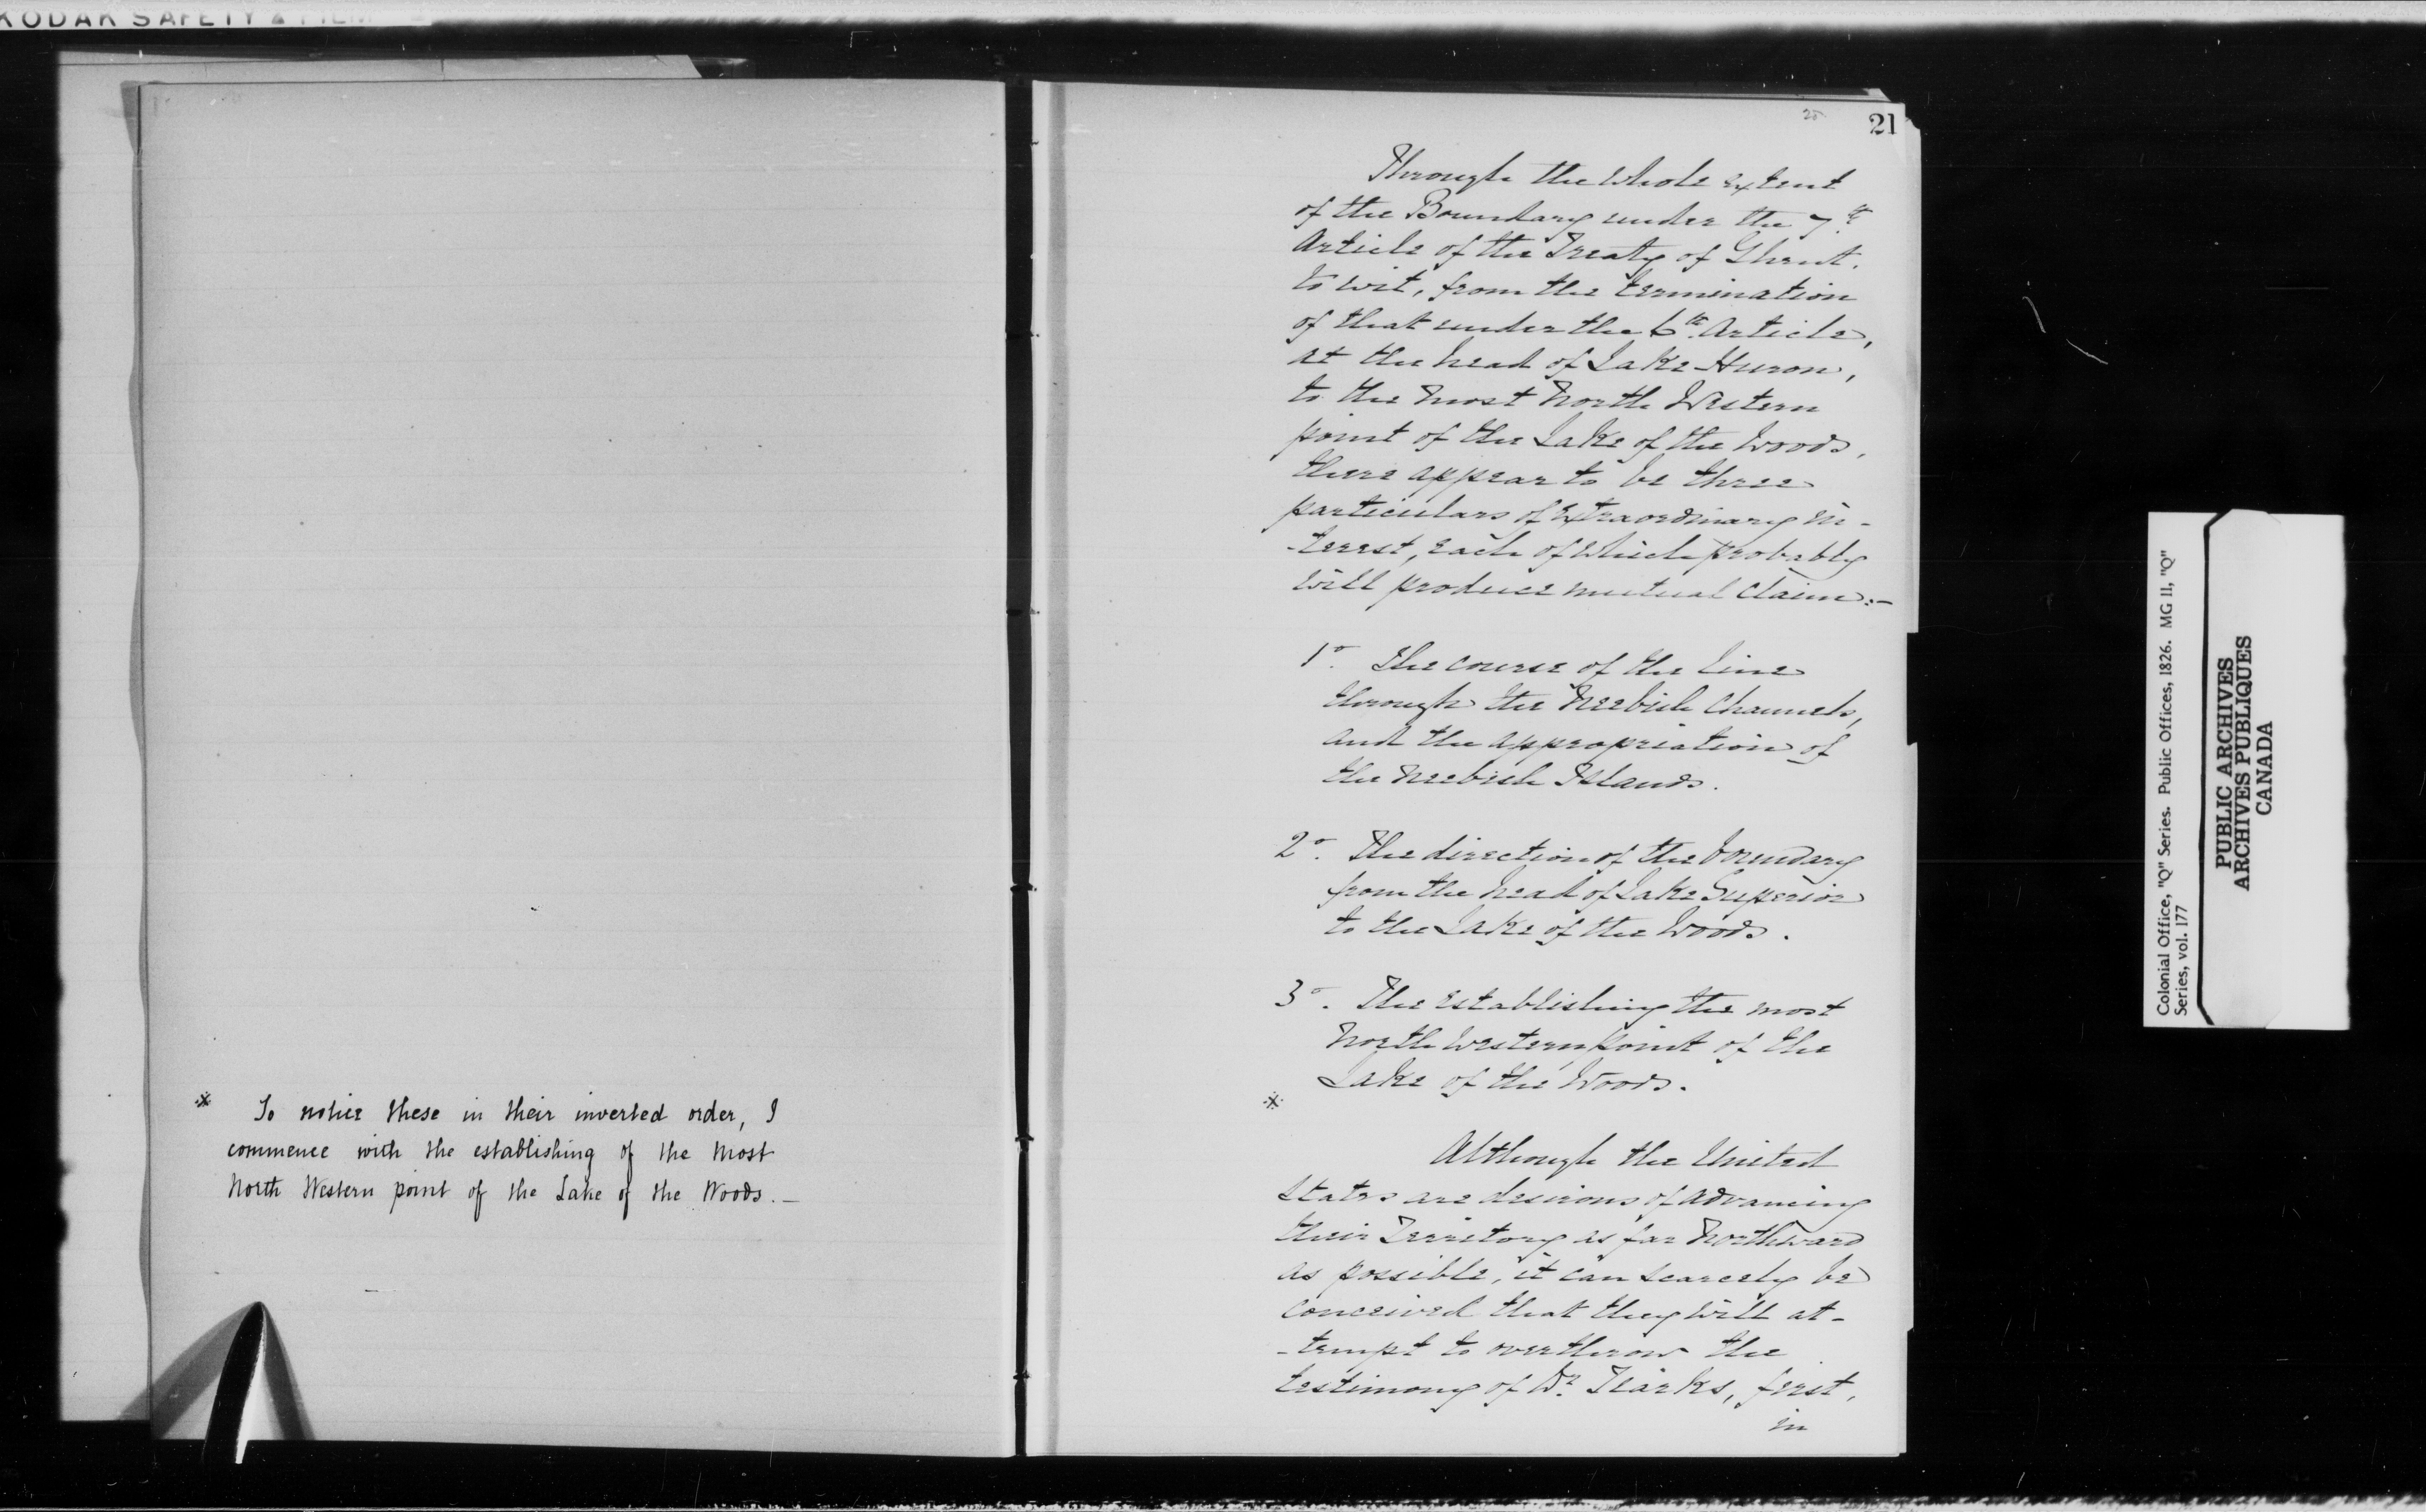 KODAK SAFETY FILM
* To notice these in their inverted order, I
commence with the establishing of the most
North Western point of the Lake of the Woods. —
21
Through the whole extent
of the Boundary under the 7th
Article of the Treaty of Ghent,
to wit, from the termination
of that under the 6th Article,
at the head of Lake Huron,
to the most North Western
point of the Lake of the Woods,
there appear to be three
particulars of extraordinary in-
-terest, each of which probably
will produce mutual claim:—
1o. The course of the line
through the Neebish Channels,
and the appropriation of
the Neebish Islands.
2o. The direction of the boundary
from the head of Lake Superior
to the Lake of the Woods.
3o. The establishing the most
North Western point of the
Lake of the Woods.
*
Although the United
States are desirous of advancing
their Territory as far Northward
as possible, it can scarcely be
conceived that they will at-
-tempt to overthrow the
testimony of Dr. Tiarks, first,
in
Colonial Office, "Q" Series. Public Offices, 1826. MG 11, "Q"
Series, vol. 177
PUBLIC ARCHIVES
ARCHIVES PUBLIQUES
CANADA